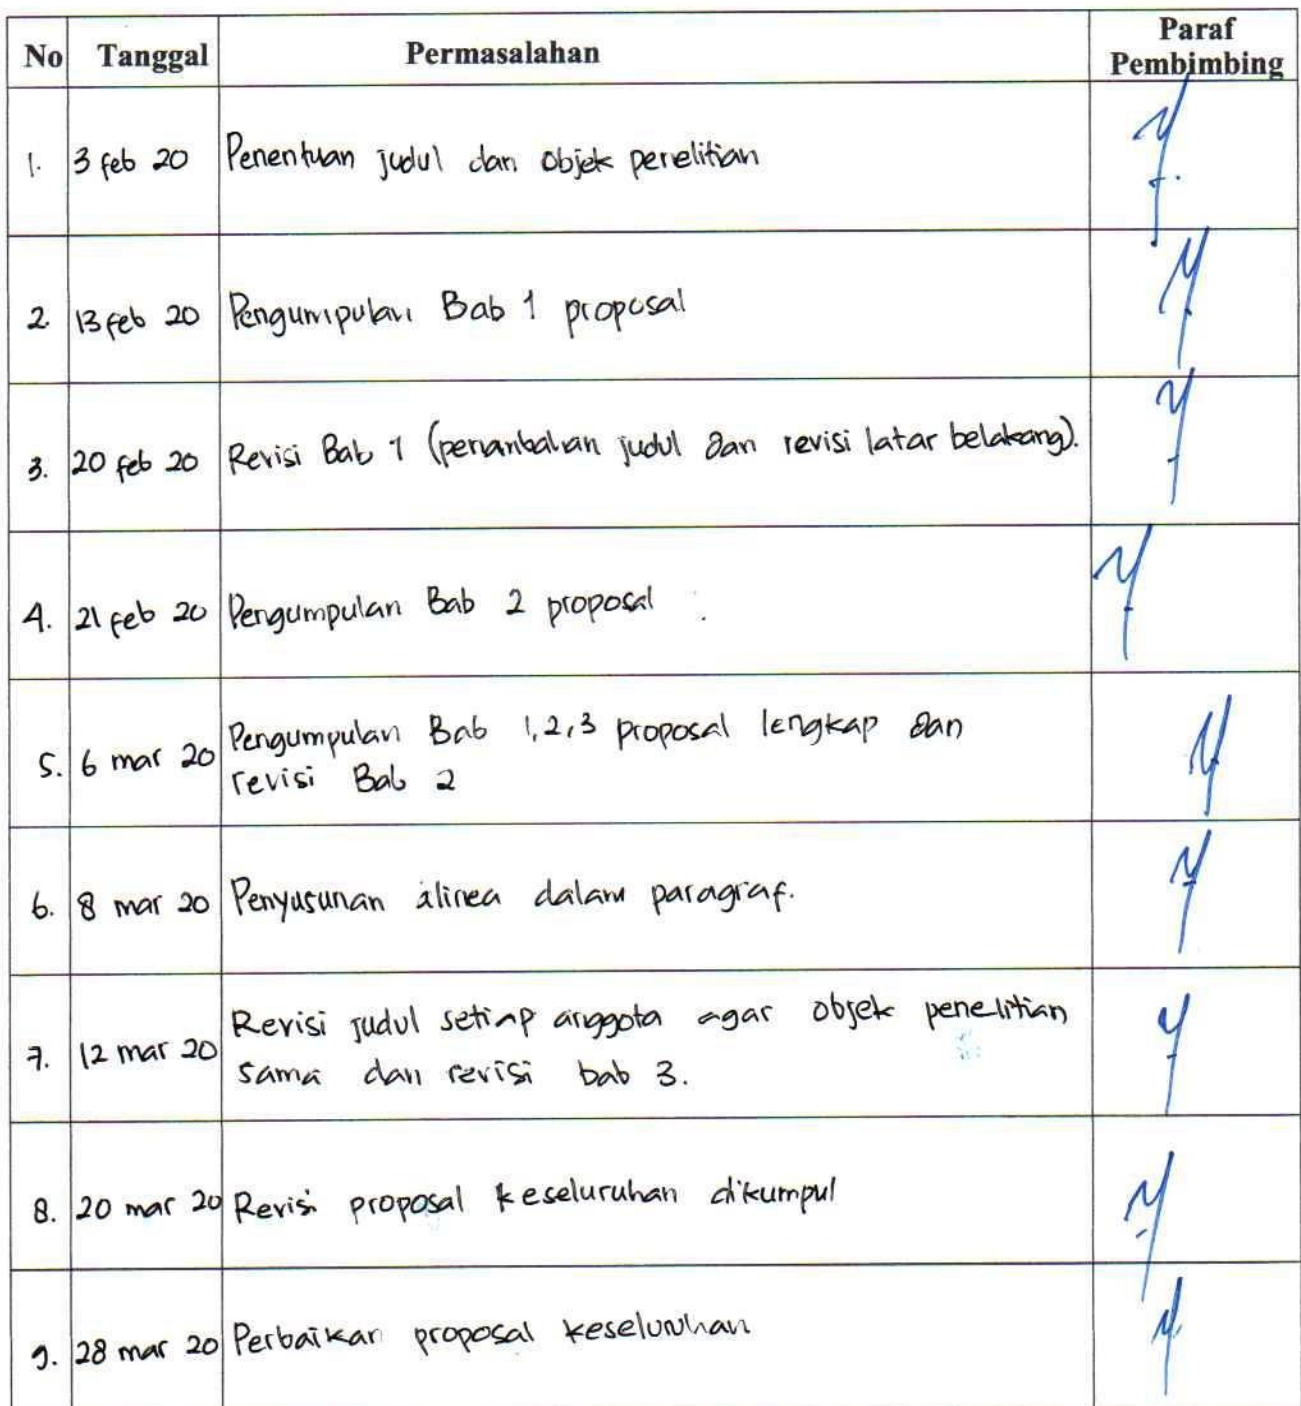 No Tanggal Permasalahan Paraf Pembimbing
1. 3 feb 20 Penentuan judul dan objek penelitian
2. 13 feb 20 Pengumpulan Bab 1 proposal
3. 20 feb 20 Revisi Bab 1 (penambahan judul dan revisi latar belakang).
4. 21 feb 20 Pengumpulan Bab 2 proposal
5. 6 mar 20 Pengumpulan Bab 1,2,3 proposal lengkap dan
revisi Bab 2
6. 8 mar 20 Penyusunan alinea dalam paragraf.
7. 12 mar 20 Revisi judul setiap anggota agar objek penelitian
sama dan revisi bab 3.
8. 20 mar 20 Revisi proposal keseluruhan dikumpul
9. 28 mar 20 Perbaikan proposal keseluruhan